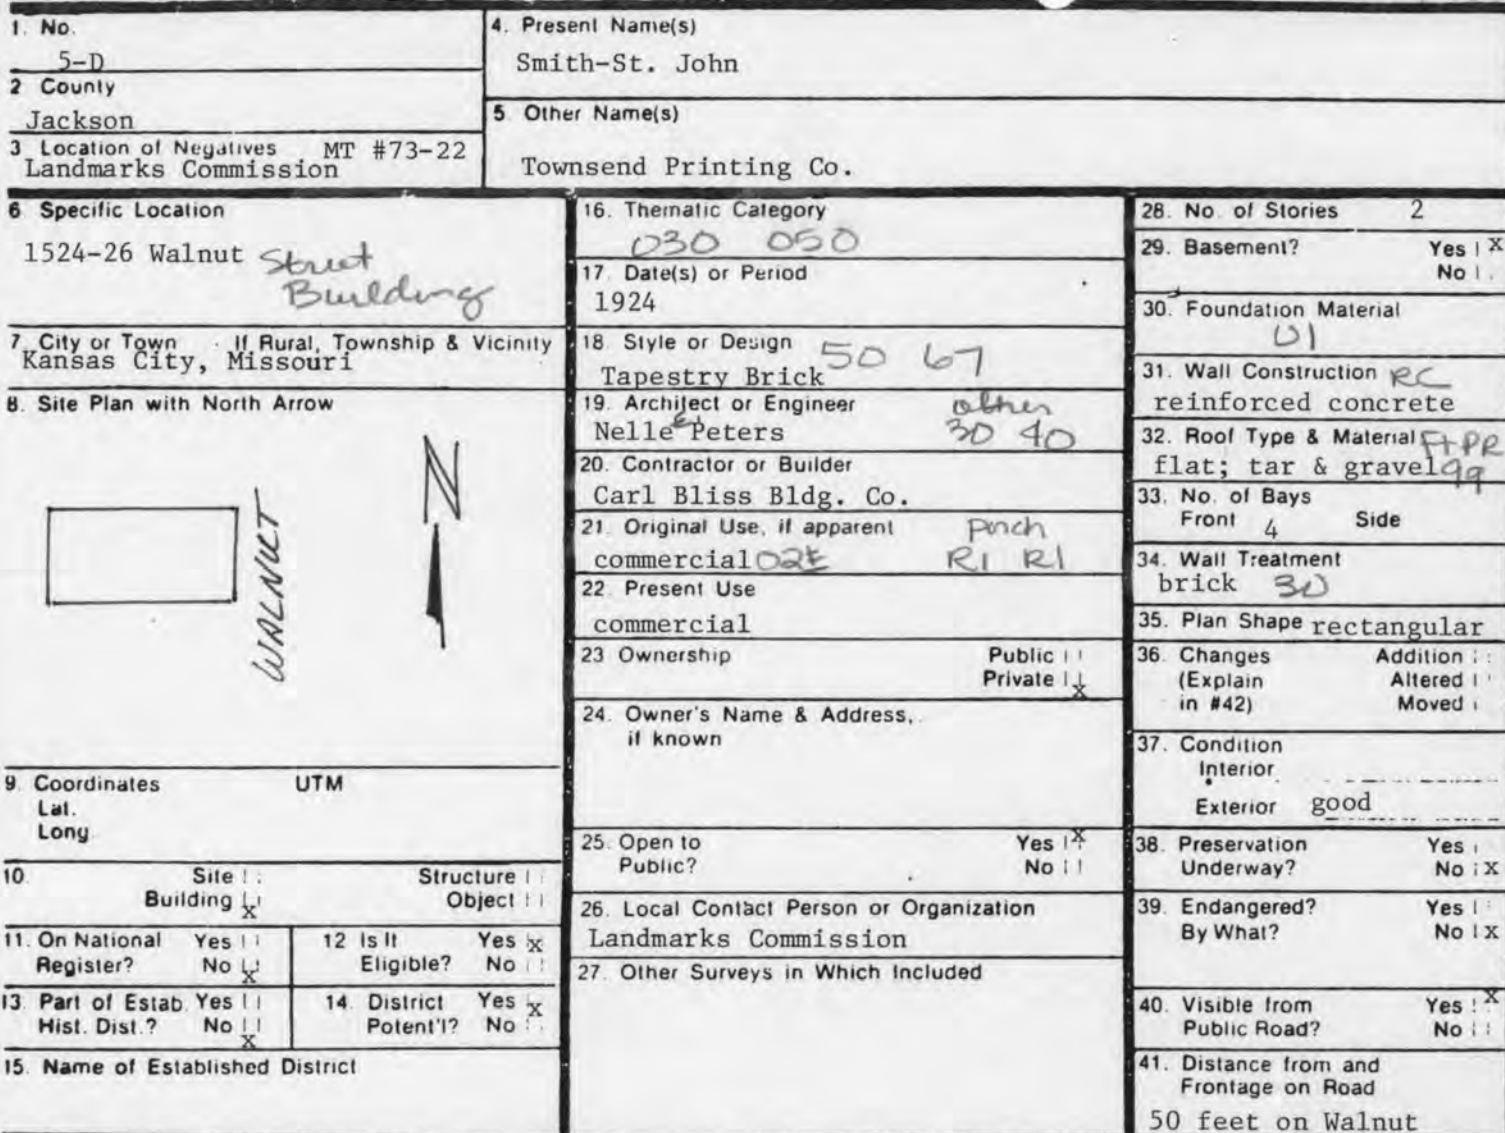 1. No.
5-D
2 County
Jackson
3 Location of Negatives MT #73-22
Landmarks Commission
4. Present Name(s)
Smith-St. John
5 Other Name(s)
Townsend Printing Co.
6 Specific Location
1524-26 Walnut Street
Building
7 City or Town If Rural, Township & Vicinity
Kansas City, Missouri
8. Site Plan with North Arrow
N
WALNUT
9. Coordinates UTM
Lat.
Long
10. Site Structure
Building X Object
11. On National Yes
Register? No X
12 Is It Yes X
Eligible? No
13. Part of Estab. Yes
Hist. Dist.? No X
14. District Yes X
Potent'l? No
15. Name of Established District
16. Thematic Category
030 050
17. Date(s) or Period
1924
18. Style or Design 50 67
Tapestry Brick
19. Architect or Engineer other
Nelle E Peters 30 40
20. Contractor or Builder
Carl Bliss Bldg. Co.
21. Original Use, if apparent porch
commercial 02E R1 R1
22. Present Use
commercial
23 Ownership Public
Private X
24. Owner's Name & Address,
if known
25. Open to Yes X
Public? No
26. Local Contact Person or Organization
Landmarks Commission
27. Other Surveys in Which Included
28. No. of Stories 2
29. Basement? Yes X
No
30. Foundation Material
01
31. Wall Construction RC
reinforced concrete
32. Roof Type & Material Ft PR
flat; tar & gravel 99
33. No. of Bays
Front 4 Side
34. Wall Treatment
brick 30
35. Plan Shape rectangular
36. Changes Addition
(Explain Altered
in #42) Moved
37. Condition
Interior
Exterior good
38. Preservation Yes
Underway? No X
39. Endangered? Yes
By What? No X
40. Visible from Yes X
Public Road? No
41. Distance from and
Frontage on Road
50 feet on Walnut